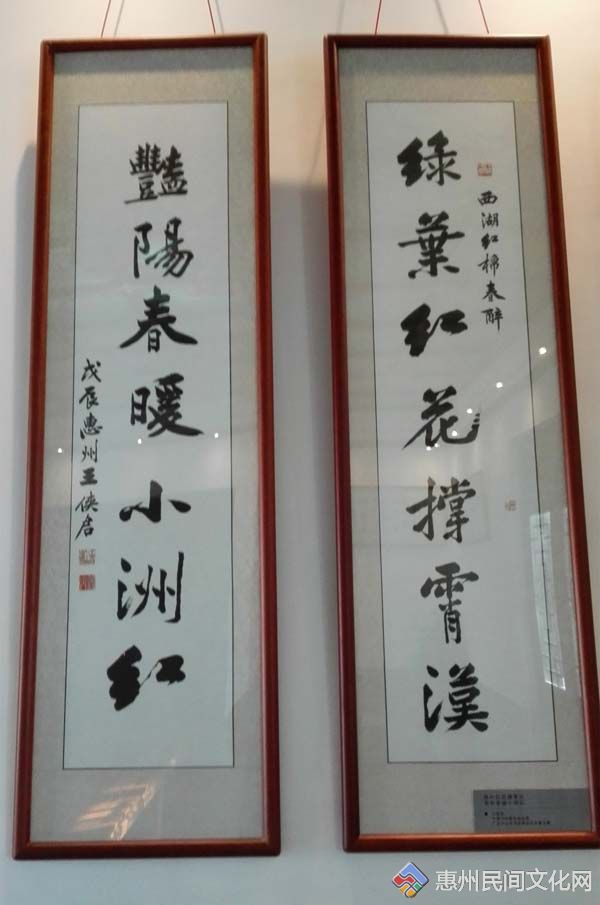 西湖红棉春醉
绿葉红花撑霄漢
豔陽春暖小洲红
戊辰惠州王俠启
惠州民间文化网